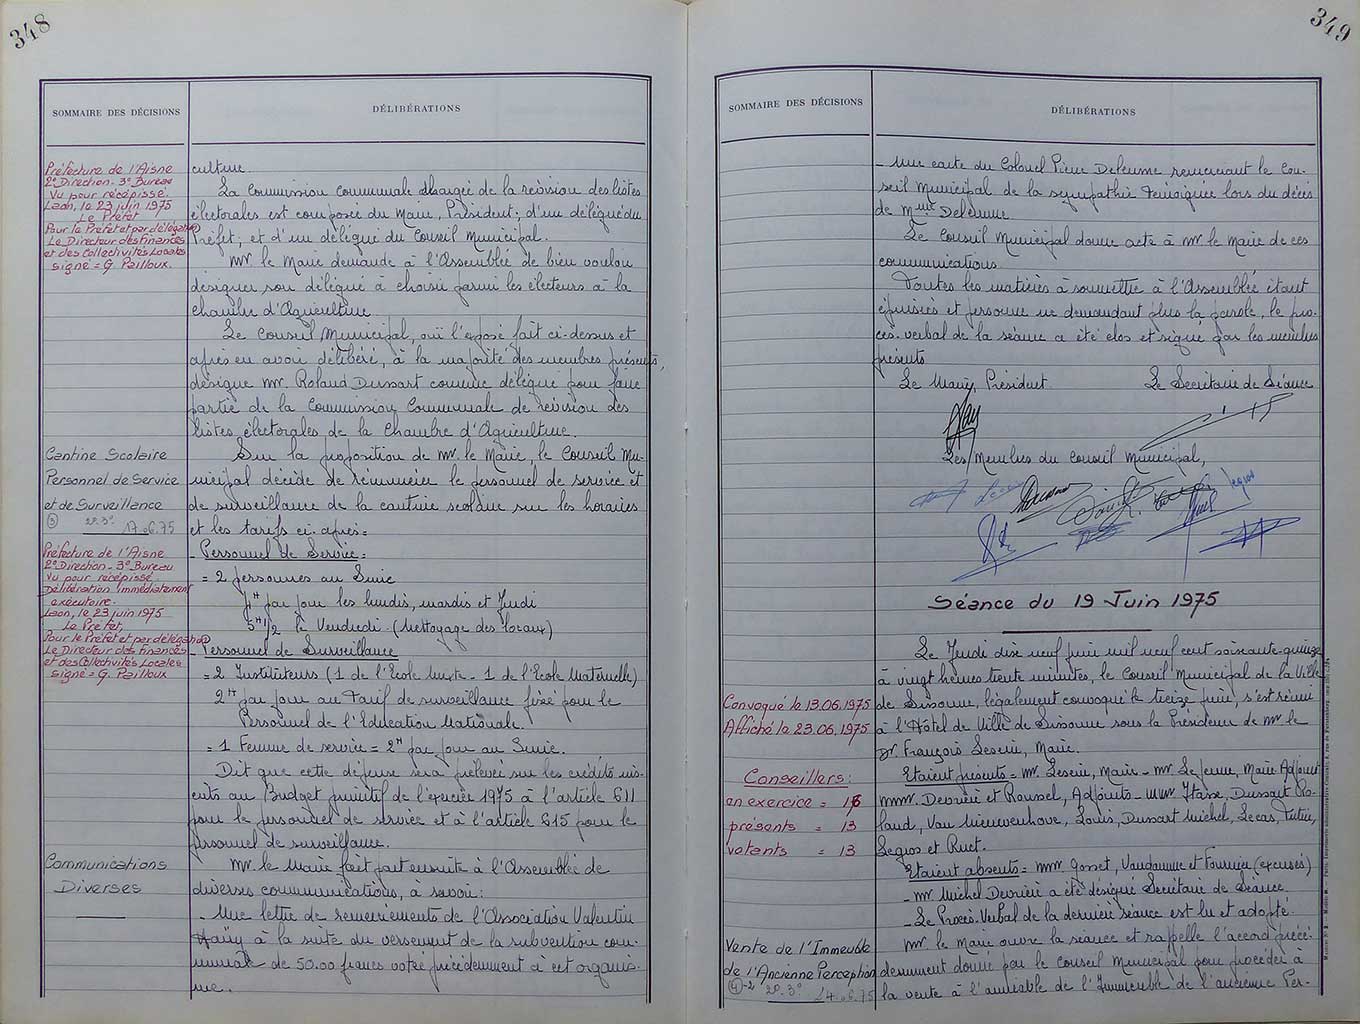 348
SOMMAIRE DES DÉCISIONS
DÉLIBÉRATIONS
Préfecture de l'Aisne
2e Direction - 3e Bureau
Vu pour récépissé
Laon, le 23 juin 1975
Le Préfet
Pour le Préfet et par délégation
Le Directeur des finances
et des Collectivités Locales
signé = G. Pailloux.
culture.
La Commission communale chargée de la révision des listes
électorales est composée du Maire, Président; d'un délégué du
Préfet; et d'un délégué du Conseil Municipal.
Mr. le Maire demande à l'Assemblée de bien vouloir
désigner son délégué à choisir parmi les électeurs à la
chambre d'Agriculture.
Le Conseil Municipal, ouï l'exposé fait ci-dessus et
après en avoir délibéré, à la majorité des membres présents,
désigne Mr. Roland Dussart comme délégué pour faire
partie de la Commission Communale de révision des
listes électorales de la Chambre d'Agriculture.
Cantine Scolaire
Personnel de Service
et de Surveillance
③ 2e.3e 17.6.75
Sur la proposition de Mr. le Maire, le Conseil Mu-
nicipal décide de rémunérer le personnel de service et
de surveillance de la cantine scolaire sur les horaires
et les tarifs ci-après=
Préfecture de l'Aisne
2e Direction - 3e Bureau
Vu pour récépissé
Délibération immédiatement
exécutoire.
Laon, le 23 juin 1975
Le Préfet,
Pour le Préfet et par délégation
Le Directeur des Finances
et des Collectivités Locales
signé = G. Pailloux
- Personnel de Service =
= 2 personnes au Smic
par jour les lundis, mardis et Jeudi
5H 1/2 le Vendredi (Nettoyage des locaux)
- Personnel de Surveillance
= 2 Instituteurs (1 de l'Ecole Mixte - 1 de l'Ecole Maternelle)
2H par jour au Tarif de surveillance fixé pour le
Personnel de l'Education Nationale.
= 1 Femme de service = 2H par jour au Smic.
Dit que cette dépense sera prélevée sur les crédits ins-
crits au Budget primitif de l'exercice 1975 à l'article 611
pour le personnel de service et à l'article 615 pour le
personnel de surveillance.
Communications
Diverses
Mr. le Maire fait part ensuite à l'Assemblée de
diverses communications, à savoir:
- Une lettre de remerciements de l'Association Valentin
Haüy à la suite du versement de la subvention com-
munale de 50.00 francs votée précédemment à cet organis-
me.
349
SOMMAIRE DES DÉCISIONS
DÉLIBÉRATIONS
- Une carte du Colonel Pierre Delerme remerciant le Con-
seil Municipal de la sympathie témoignée lors du décès
de Mme Delerme.
Le Conseil Municipal donne acte à Mr. le Maire de ces
communications.
Toutes les matières à soumettre à l'Assemblée étant
épuisées et personne ne demandant plus la parole, le pro-
cès-verbal de la séance a été clos et signé par les membres
présents
Le Maire, Président
Le Secrétaire de Séance
Les Membres du Conseil Municipal,
Séance du 19 Juin 1975
Le Jeudi dix neuf juin mil neuf cent soixante-quinze
à vingt heures trente minutes, le Conseil Municipal de la Ville
Convoqué le 13.06.1975
Affiché le 23.06.1975
de Sissonne, légalement convoqué le treize juin, s'est réuni
à l'Hôtel de Ville de Sissonne sous la Présidence de Mr le
Dr. François Leserie, Maire.
Conseillers:
en exercice = 16
présents = 13
votants = 13
Etaient présents = Mr. Leserie, Maire - Mr. Lejeune, Maire Adjoint
MMr. Devrière et Roussel, Adjoints - MMr Itasse, Dussart Ro-
land, Van Nieuwenhove, Louis, Dussart Michel, Lecas,
Legros et Ruet.
Etaient absents = MMr Gosset, Vaudamme et Fournier (excusés)
- Mr. Michel Devrière a été désigné Secrétaire de Séance.
- Le Procès-Verbal de la dernière séance est lu et adopté.
Vente de l'Immeuble
de l'Ancienne Perception
④-2 2e.3e 24.6.75
Mr. le Maire ouvre la séance et rappelle l'accord précé-
demment donné par le Conseil Municipal pour procéder à
la vente à l'amiable de l'Immeuble de l'ancienne Per-